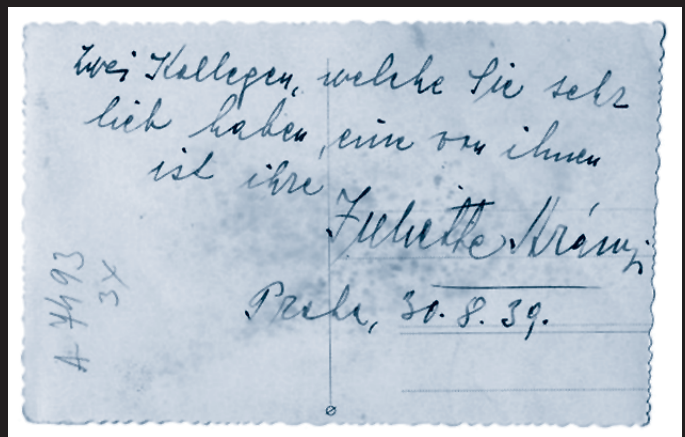 Zwei Kollegen, welche Sie sehr
lieb haben, eine von ihnen
ist ihre
Juliette
Praha, 30. 8. 39.
A 7493
3x